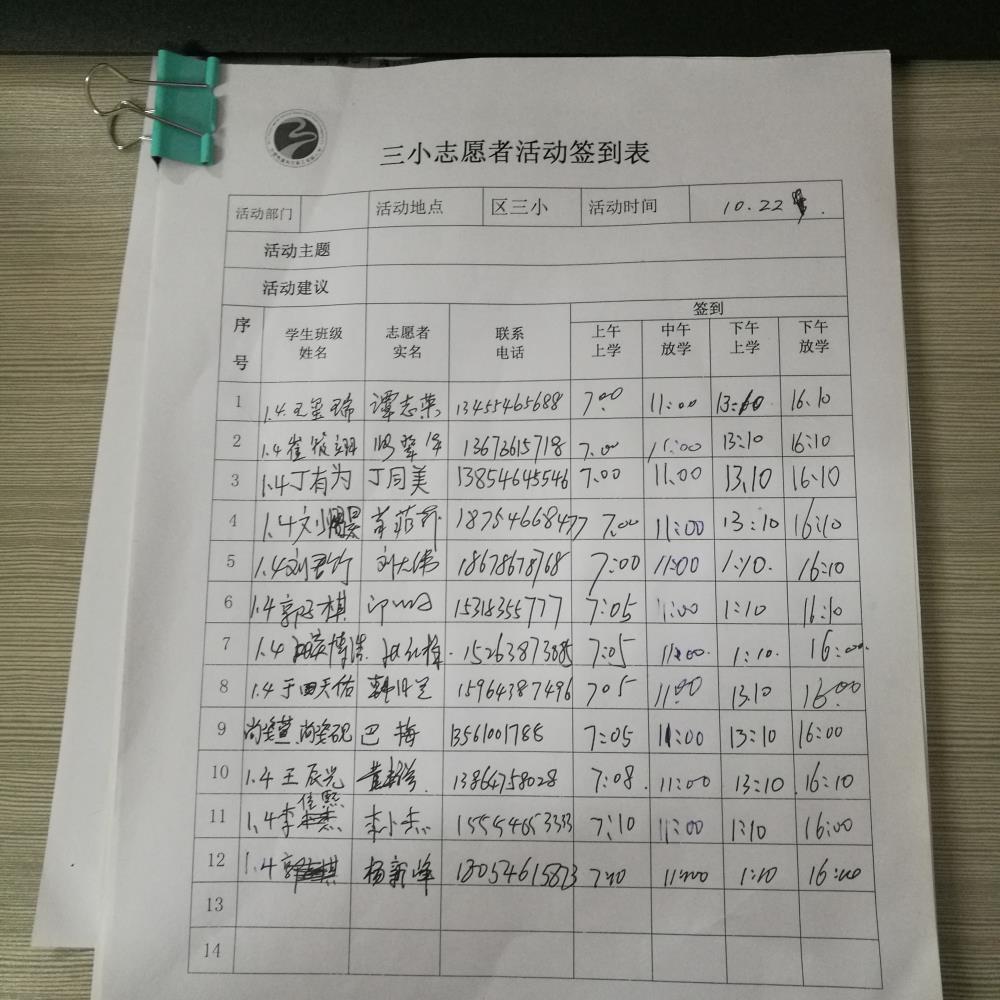 三小志愿者活动签到表
活动部门 活动地点 区三小 活动时间 10.22
活动主题
活动建议
序号 学生班级姓名 志愿者实名 联系电话 签到
上午上学 中午放学 下午上学 下午放学
1 1.4. 王 瑞 谭志荣 13455465688 7:00 11:00 16.10
2 1.4 崔筱翊 13673615718 7.00 11:00 13:10 16:10
3 1.4 丁有为 丁同美 13854645546 7:00 11.00 13.10 16:10
4 1.4 刘 昊 18754668477 7.00 11:00 13:10 16:10
5 1.4 刘君竹 刘大伟 18678678768 7:00 11:00 1:10. 16:10
6 1.4 郭 棋 15318355777 7:05 11:00 1:10 16:10
7 1.4 博浩 15263873885 7:05 11:00 1:10. 16:00
8 1.4 于田天佑 15964387496 7:05 11:00 13.10 16:00
9 尚 尚 砚 巴梅 13561001788 7:05 11:00 13:10 16:00
10 1.4 王辰光 13864758028 7:08. 11:00 13:10 16:10
11 1.4 李佳熙 李卜杰 15554653333 7:10 11:00 1:10 16:00
12 1.4 杨新峰 18054615873 7:10 11:00 1:10 16:00
13
14